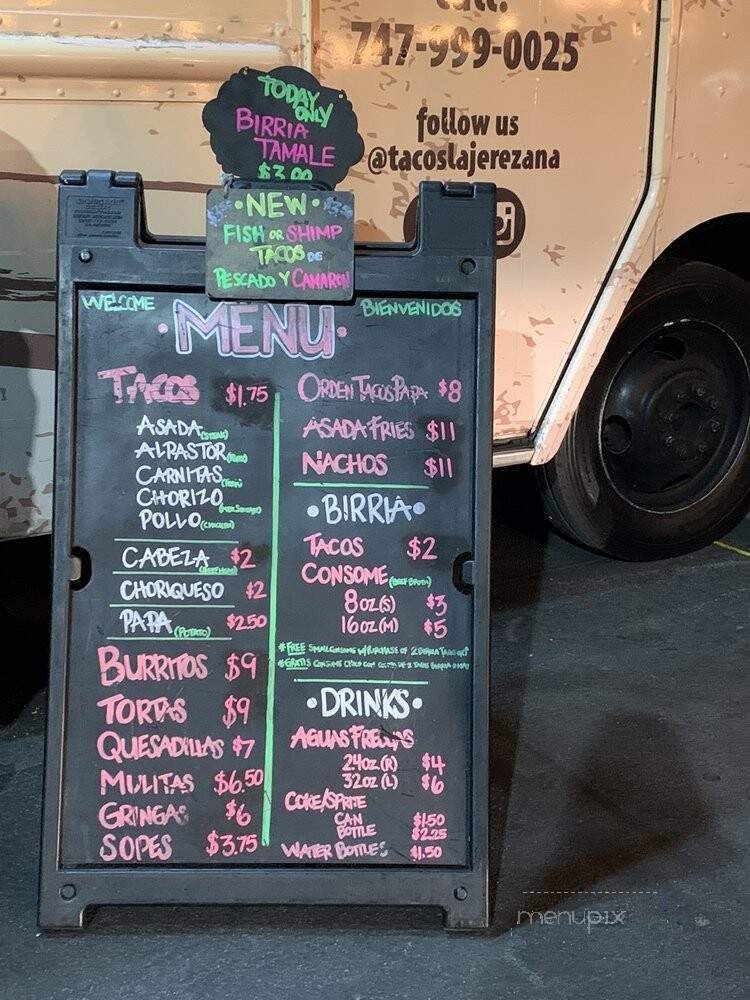 Call:
747-999-0025
follow us
@tacoslajerezana
TODAY
ONLY
BIRRIA
TAMALE
$3.00
•NEW•
FISH OR SHIMP
TACOS DE
PESCADO Y CAMARON
WELCOME
BIENVENIDOS
•MENU•
TACOS $1.75
ASADA (STEAK)
ALPASTOR (PORK)
CARNITAS
CHORIZO (MEX. SAUSAGE)
POLLO (CHICKEN)
CABEZA (BEEF HEAD) $2
CHORIQUESO $2
PAPA (POTATO) $2.50
BURRITOS $9
TORTAS $9
QUESADILLAS $7
MULITAS $6.50
GRINGAS $6
SOPES $3.75
ORDEN TACOS PAPA $8
ASADA FRIES $11
NACHOS $11
•BIRRIA•
TACOS $2
CONSOME (BEEF BROTH)
8oz(S) $3
16oz(M) $5
*FREE SMALL CONSOME W/PURCHASE OF 2 BIRRIA TACOS
*GRATIS CONSOME CHICO CON
•DRINKS•
AGUAS FRESCAS
24oz.(R) $4
32oz.(L) $6
COKE/SPRITE
CAN $1.50
BOTTLE $2.25
WATER BOTTLES $1.50
menupix